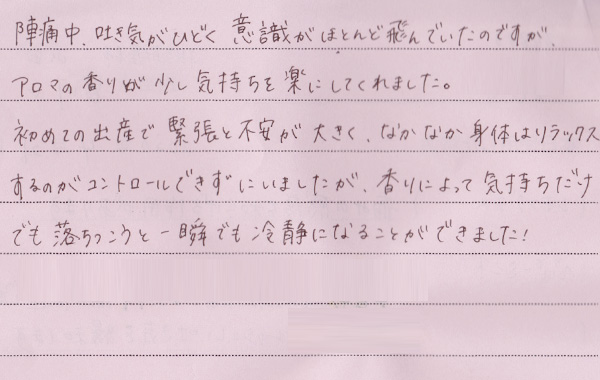 陣痛中、吐き気がひどく意識がほとんど飛んでいたのですが、
アロマの香りが少し気持ちを楽にしてくれました。
初めての出産で緊張と不安が大きく、なかなか身体はリラックス
するのがコントロールできずにいましたが、香りによって気持ちだけ
でも落ちつこうと一瞬でも冷静になることができました!